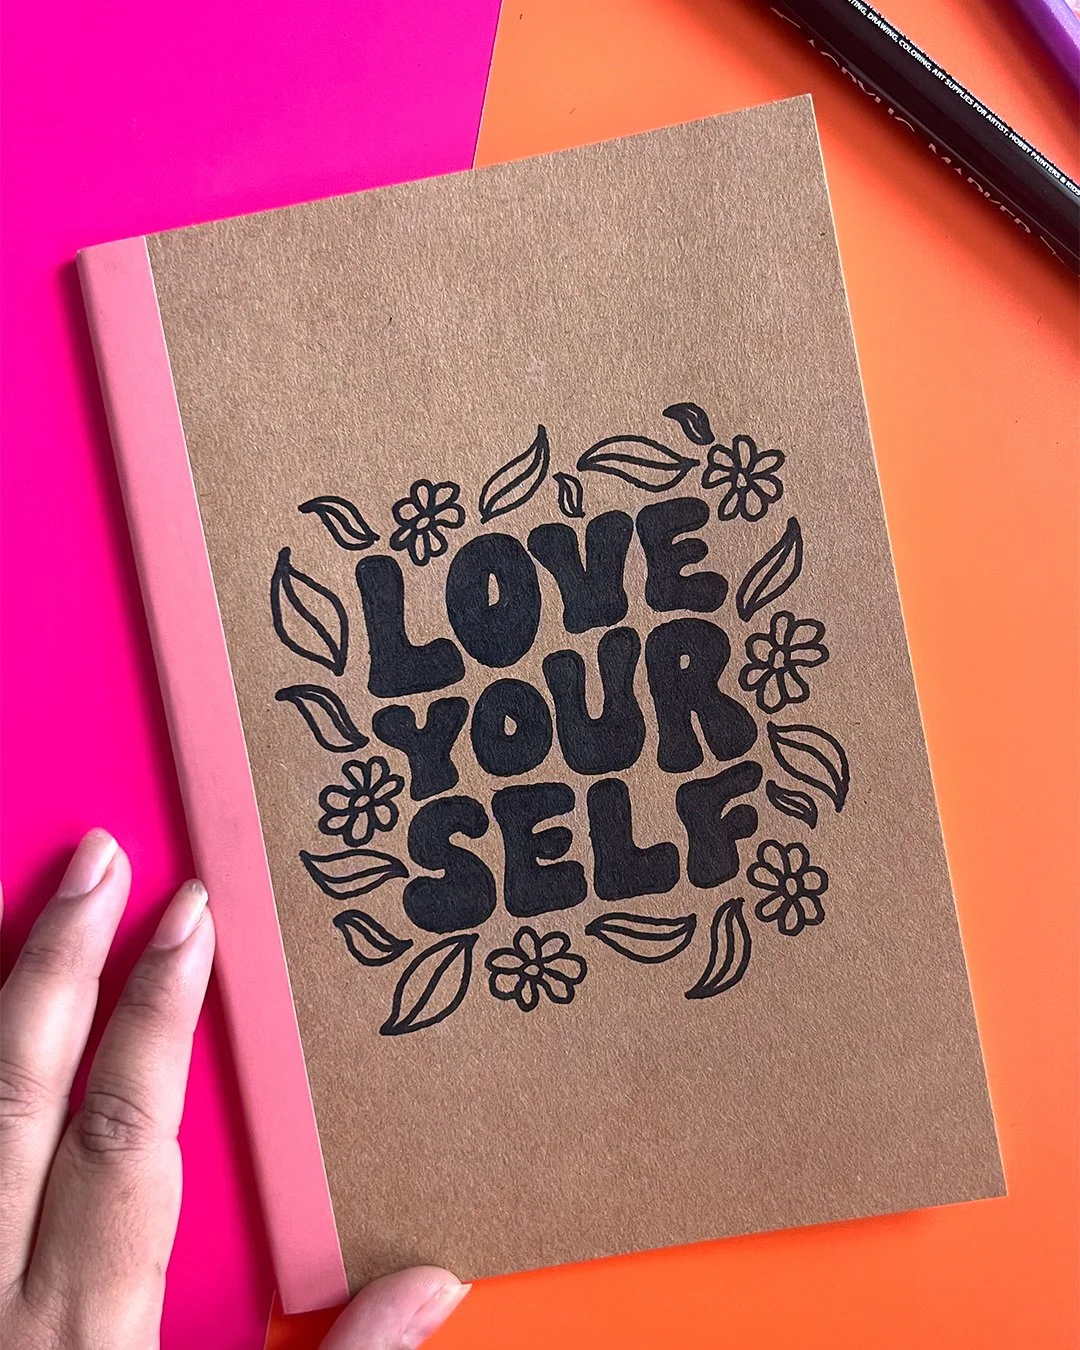 TING, DRAWING, COLORING, ART SUPPLIES FOR ARTIST, HOBBY PAINTERS & KIDS
ACRYLIC MARKER
LOVE
YOUR
SELF